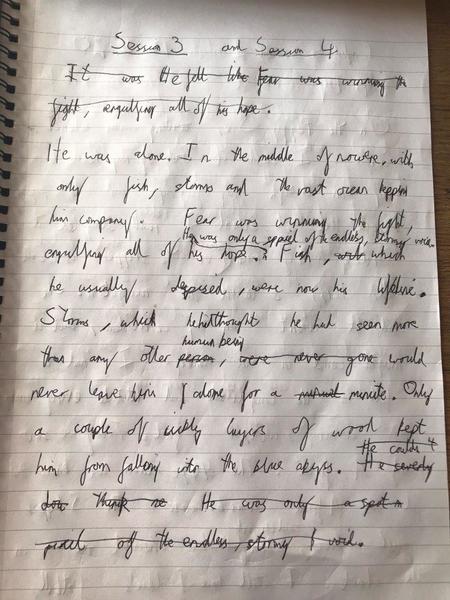 Session 3 and Session 4
It was He felt like Fear was winning the
fight, engulfing all of his hope.
He was alone. In the middle of nowere, with
only fish, storms and the vast ocean keppin
him company. Fear was winning the fight,
He was only a of the endless, stormy void.
engulfing all of his hope. Fish, which
he usually despised, were now his lifeline.
Storms, which he thought he had seen more
human being
than any other person, were never gone would
never leave him alone for a minute. Only
a couple of layers of wood kept
He could
him from falling into the blue abyss. He
think He was only a
off the endless, stormy void.